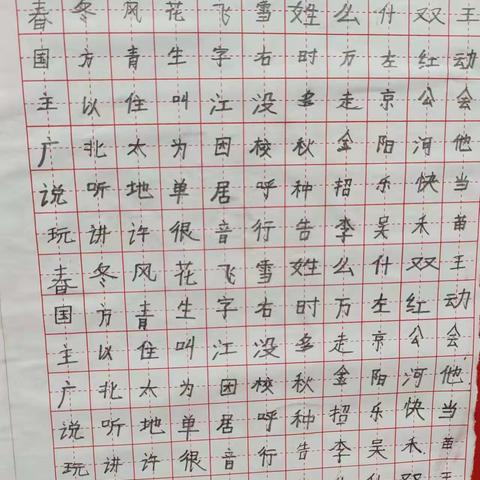 春冬风花飞雪姓么什双王
国方青生字右时万左红动
主以住叫江没多走京公会
广北太为因校秋金阳河他
说听地单居呼种招乐快当
玩讲许很音行告李吴禾苗
春冬风花飞雪姓么什双王
国方青生字右时万左红动
主以住叫江没多走京公会
广北太为因校秋金阳河他
说听地单居呼种招乐快当
玩讲许很音行告李吴禾苗
什双王